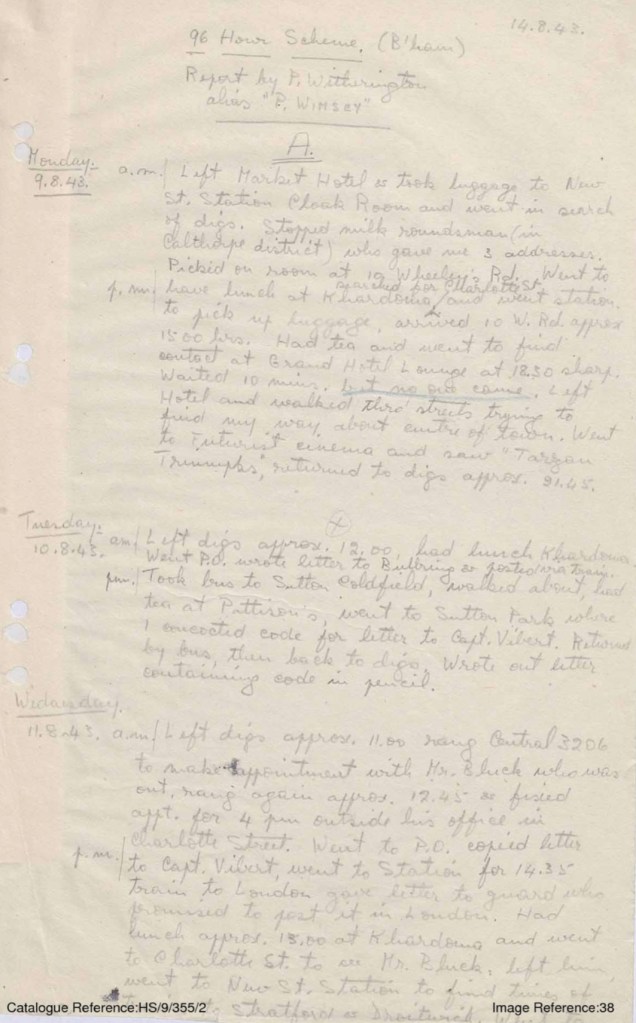 14.8.43.
96 Hour Scheme. (B'ham)
Report by P. Witherington
alias "P. WIMSEY"
A.
Monday:- a.m./ Left Market Hotel & took luggage to New
9.8.43. St. Station Cloak Room and went in search
of digs. Stopped milk roundsman (in
Calthorpe district) who gave me 3 addresses.
Picked on room at 19 Wheeley's Rd. Went to
searched for Charlotte St.
p.m./ have lunch at Khardoma and went station
to pick up luggage, arrived 10 W. Rd. approx
1500 hrs. Had tea and went to find
contact at Grand Hotel Lounge at 18.30 sharp.
Waited 10 mins. but no one came. Left
Hotel and walked thro' streets trying to
find my way about centre of town. Went
to Futurist cinema and saw "Tarzan
Triumphs", returned to digs approx. 21.45.
Tuesday:- am/ Left digs approx. 12.00, had lunch Khardoma.
10.8.43. Went P.O. wrote letter to & posted via train.
pm./ Took bus to Sutton Coldfield, walked about, had
tea at Pattison's, went to Sutton Park where
I concocted code for letter to Capt. Vibert. Returned
by bus, then back to digs. Wrote out letter
containing code in pencil.
Wednesday.
11.8.43. a.m/ Left digs approx. 11.00 rang Central 3206
to make appointment with Mr. Bluck who was
out, rang again approx. 12.45 & fixed
appt. for 4 pm outside his office in
Charlotte Street. Went to P.O. copied letter
p.m./ to Capt. Vibert, went to Station for 14.35
train to London gave letter to guard who
promised to post it in London. Had
lunch approx. 15.00 at Khardoma and went
to Charlotte St. to see Mr. Bluck, left him,
went to New St. Station to find times of
Stratford & Droitwich.
Catalogue Reference:HS/9/355/2
Image Reference:38